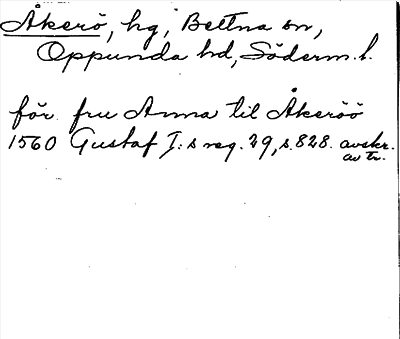 Åkerö, hg, Bettna sn,
Oppunda hd, Söderm. l.
för fru Anna til Åkeröö
1560 Gustaf I:s reg. 29, s. 828. avskr.
av tr.